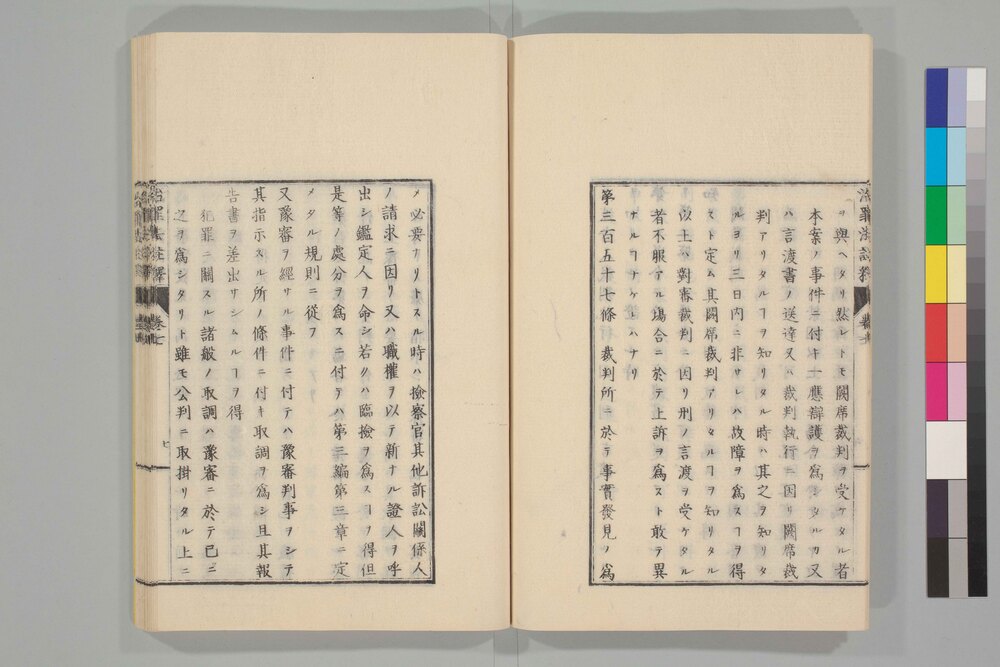 ヲ與ヘタリ然レトモ闕席裁判ヲ受ケタル者
本案ノ事件ニ付キ一應辯護ヲ爲シタルカ又
ハ言渡書ノ送達又ハ裁判執行ニ因リ闕席裁
判アリタルヿヲ知リタル時ハ其之ヲ知リタ
ルヨリ三日内ニ非サレハ故障ヲ爲スヿヲ得
スト定ム其闕席裁判アリタルヿヲ知リタル
以上ハ對審裁判ニ因リ刑ノ言渡ヲ受ケタル
者不服テル場合ニ於テ上訴ヲ爲スト敢テ異
ナルヿナケレハナリ
第三百五十七條 裁判所ニ於テ事實發見ノ爲
メ必要ナリトスル時ハ檢察官其他訴訟關係人
ノ請求ニ因リ又ハ職權ヲ以テ新ナル證人ヲ呼
出シ鑑定人ヲ命シ若クハ臨檢ヲ爲スヿヲ得但
是等ノ處分ヲ爲スニ付テハ第三編第三章ニ定
メタル規則ニ從フ
又豫審ヲ經サル事件ニ付テハ豫審判事ヲシテ
其指示スル所ノ條件ニ付キ取調ヲ爲シ且其報
告書ヲ差出サシムルヿヲ得
犯罪ニ關スル諸般ノ取調ハ豫審ニ於テ已ニ
之ヲ爲シタリト雖モ公判ニ取掛リタル上ニ
治罪法註釋 卷七
七